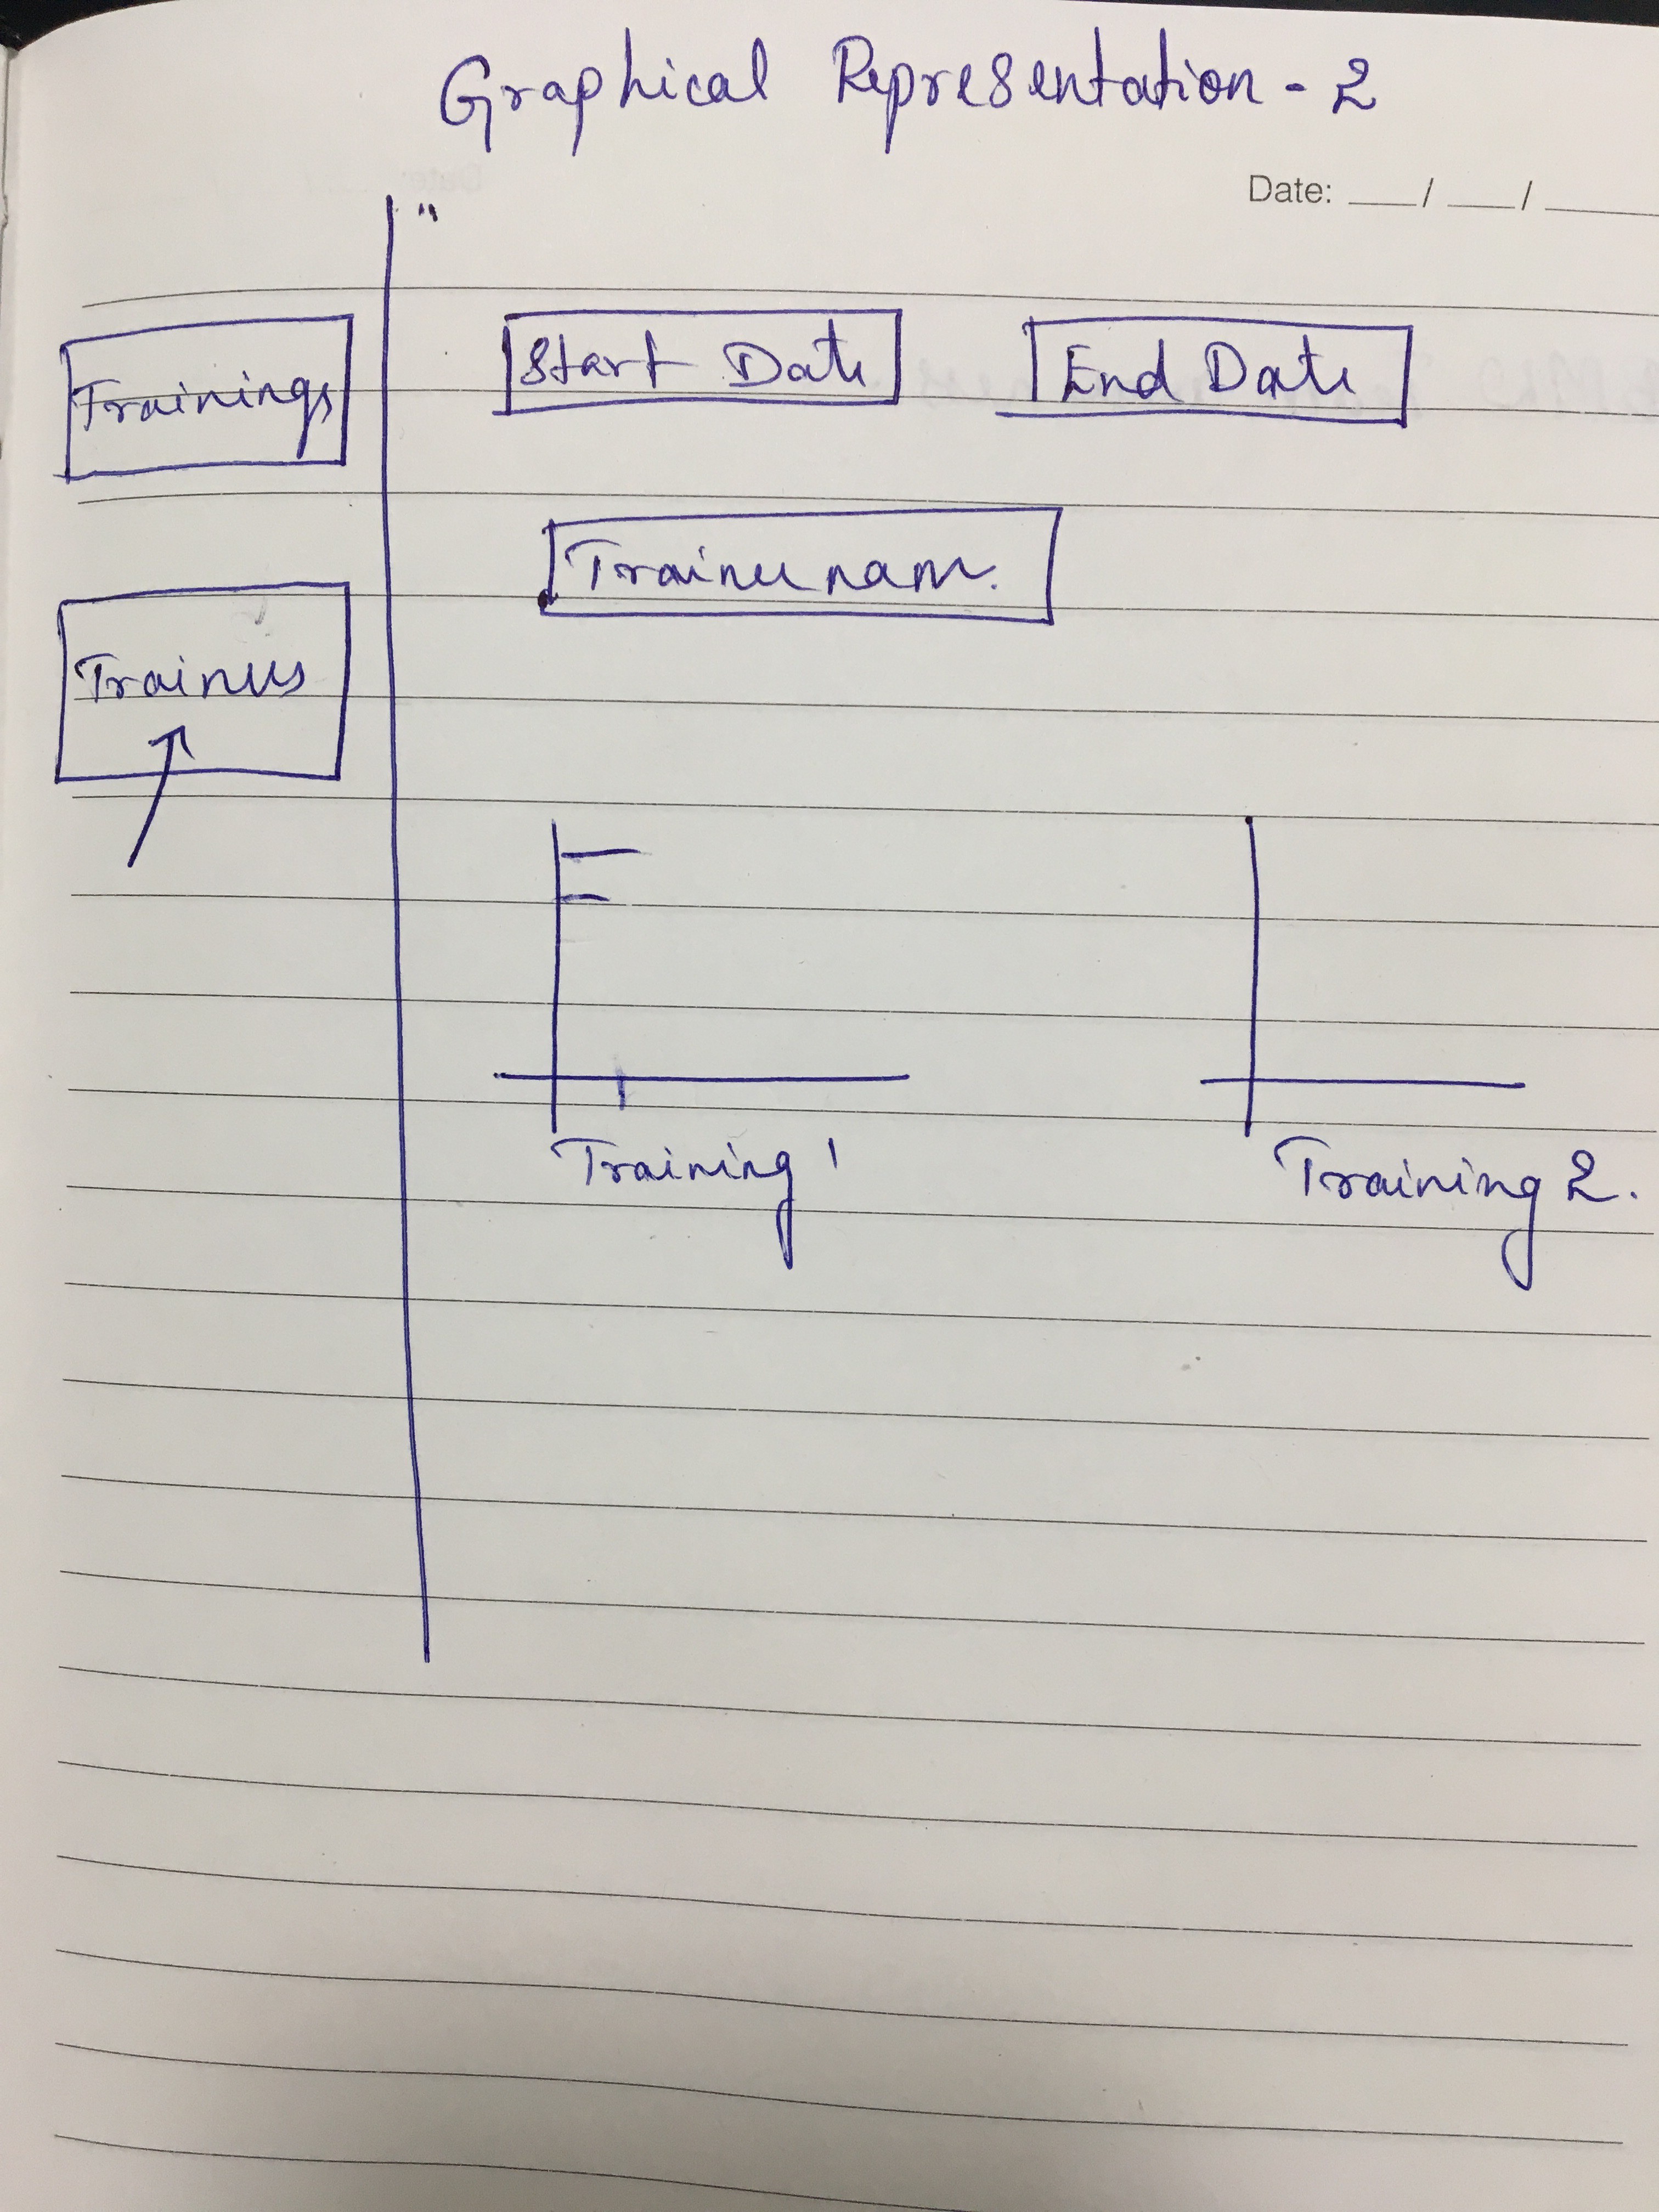 Graphical Representation - 2
Date: ___/___/___
Trainings
Start Date
End Date
Trainee name.
Trainees
Training 1
Training 2.